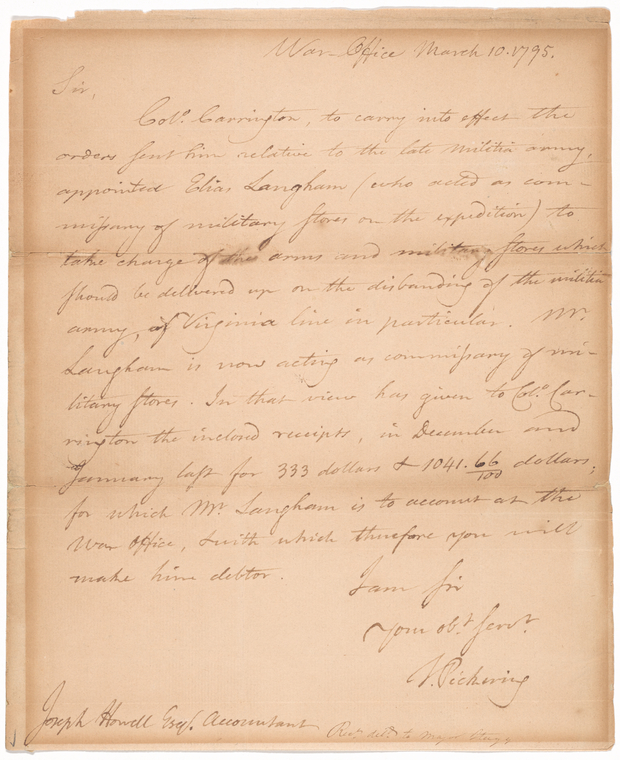 War-Office March 10. 1795.
Sir,
Colº. Carrington, to carry into effect the
orders sent him relative to the late militia army,
appointed Elias Langham (who acted as com-
missary of military stores on the expedition) to
take charge of the arms and military stores which
should be delivered up on the disbanding of the militia
army, of Virginia line in particular. Mr.
Langham is now acting as commissary of mi-
litary stores. In that view has given to Colº. Car-
rington the inclosed receipts, in December and
January last for 333 dollars & 1041.66/100 dollars;
for which Mr. Langham is to account at the
War Office, & with which therefore you will
make him debtor.
I am Sir
your obt. servt.
T. Pickering
Joseph Howell Esqr. Accountant
to Major